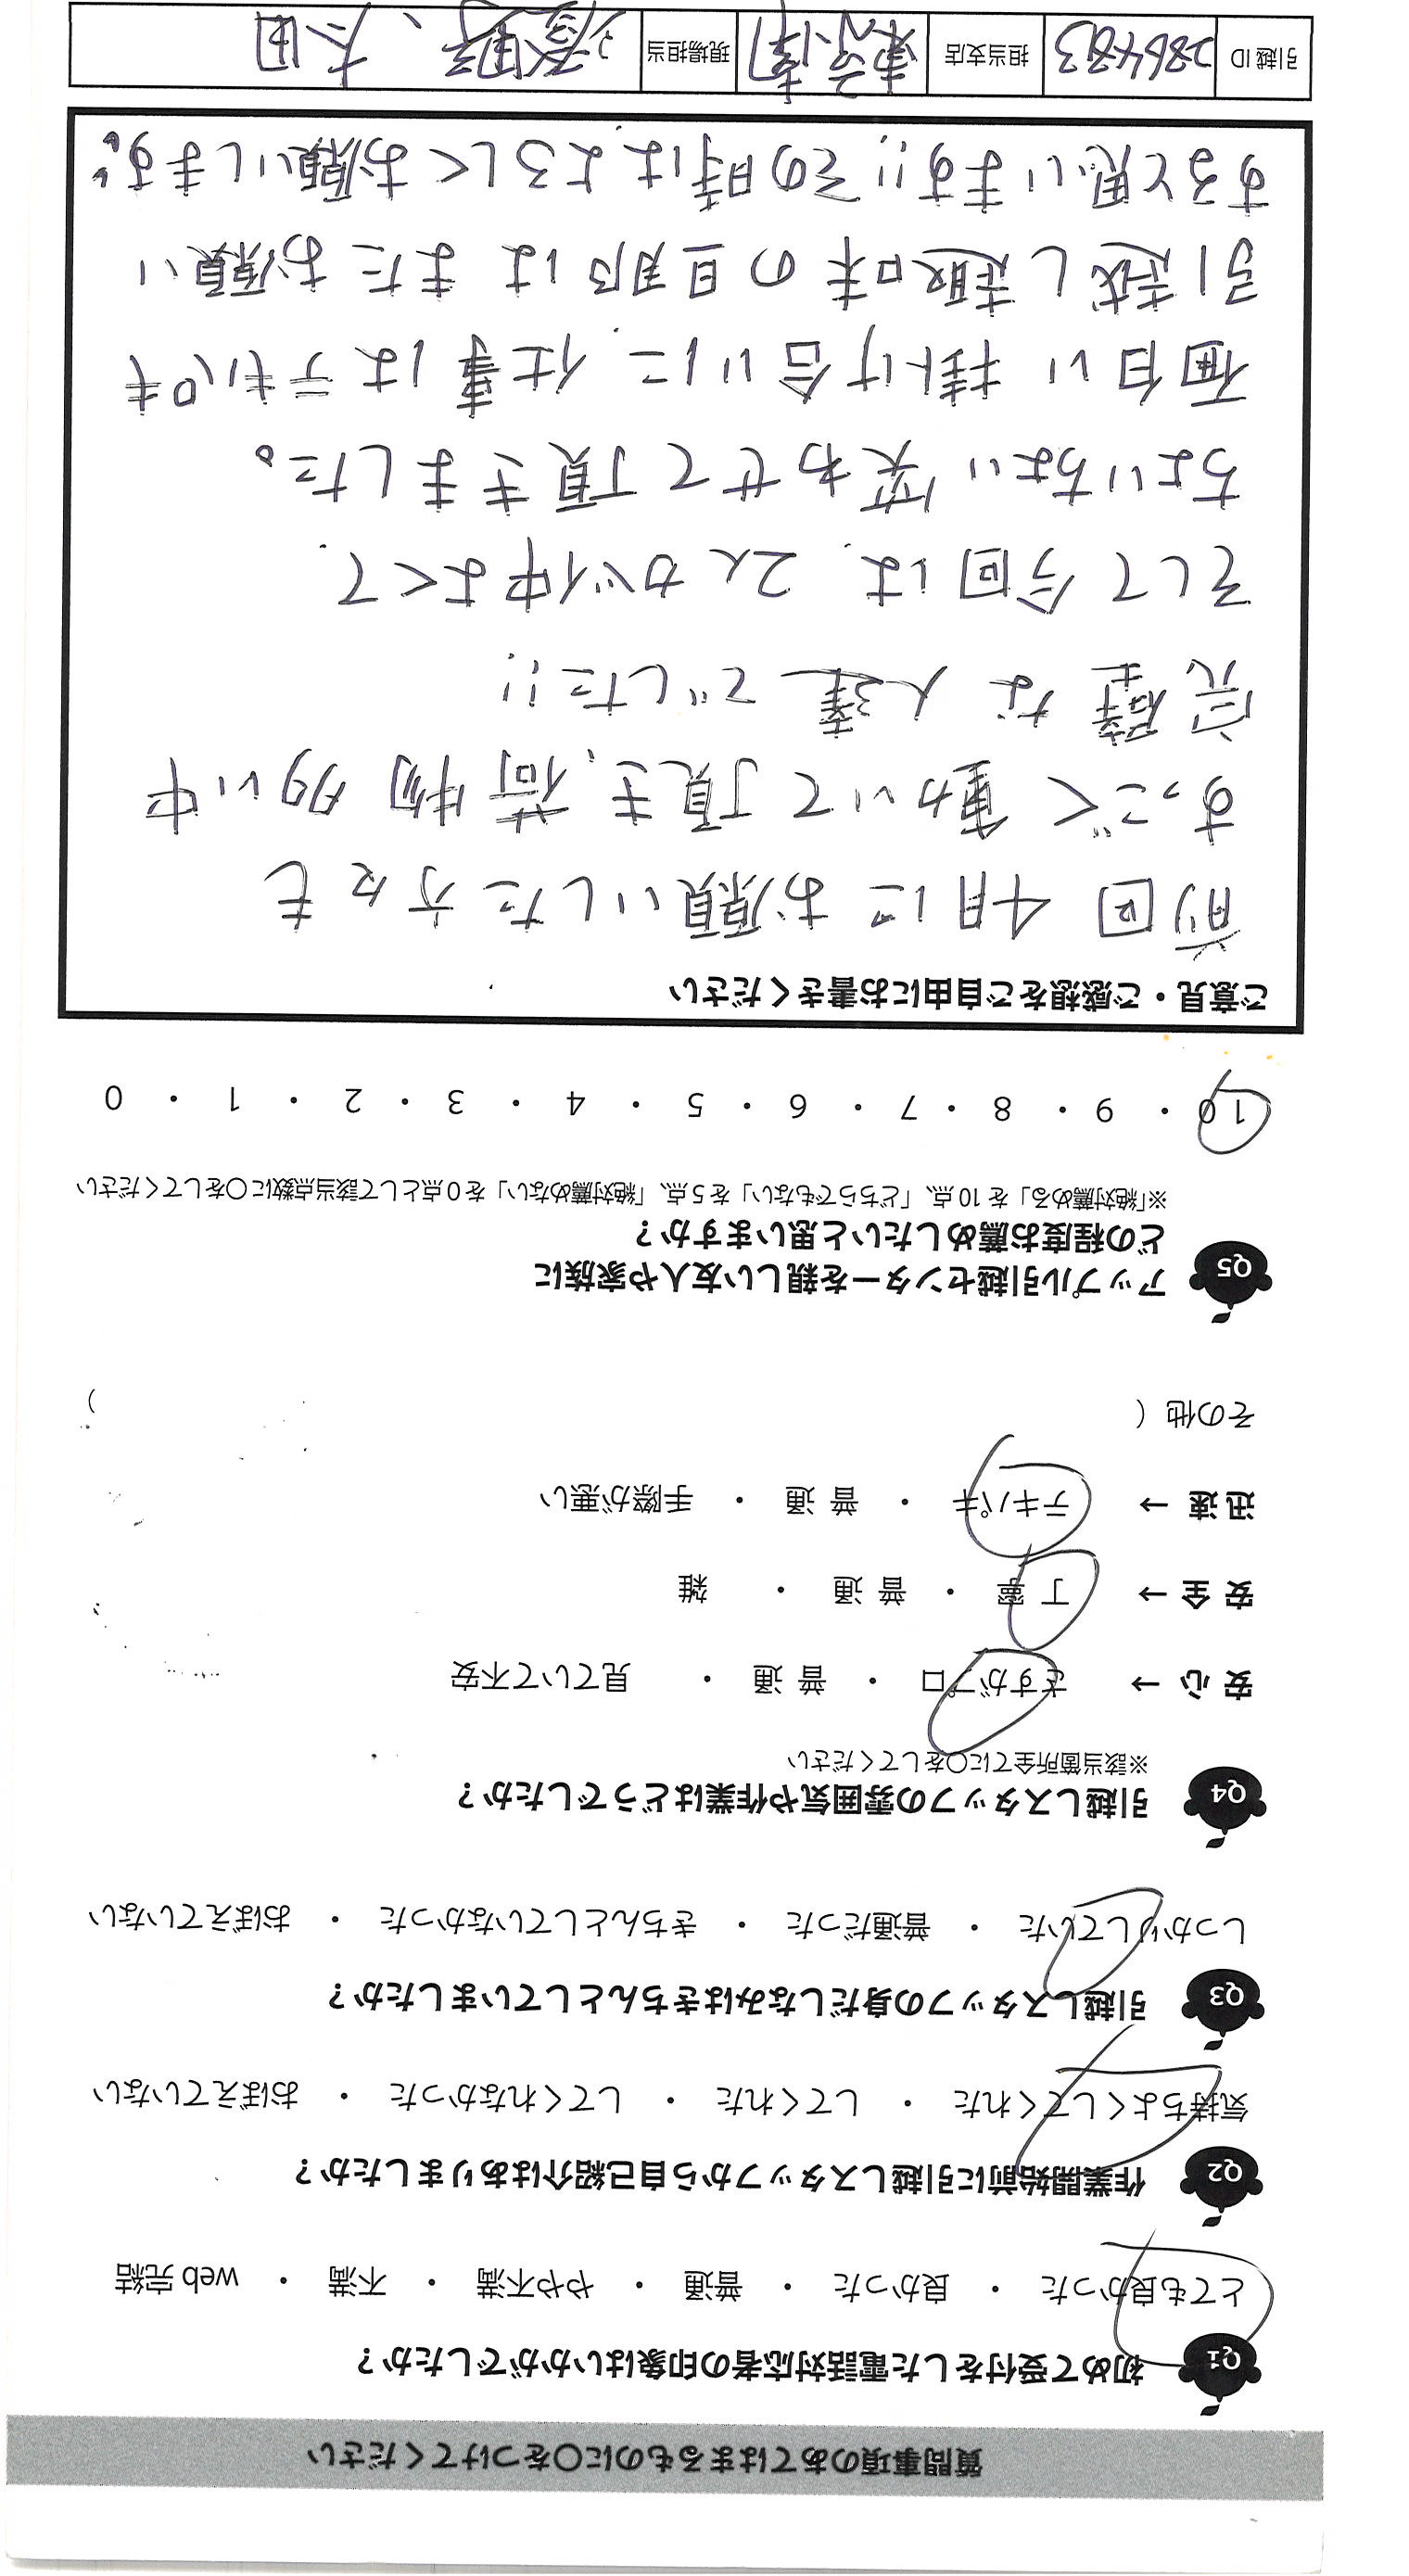 質問事項のあてはまるものに〇をつけてください
Q1 初めて受付をした電話対応者の印象はいかがでしたか？
とても良かった ・ 良かった ・ 普通 ・ やや不満 ・ 不満 ・ web 完結
Q2 作業開始前に引越しスタッフから自己紹介はありましたか？
気持ちよくしてくれた ・ してくれた ・ してくれなかった ・ おぼえていない
Q3 引越しスタッフの身だしなみはきちんとしていましたか？
しっかりしていた ・ 普通だった ・ きちんとしていなかった ・ おぼえていない
Q4 引越しスタッフの雰囲気や作業はどうでしたか？
※該当箇所全てに〇をしてください
安 心 → さすがプロ ・ 普 通 ・ 見ていて不安
安 全 → 丁 寧 ・ 普 通 ・ 雑
迅 速 → テキパキ ・ 普 通 ・ 手際が悪い
その他 （ ）
Q5 アップル引越センターを親しい友人や家族に
どの程度お薦めしたいと思いますか？
※「絶対薦める」を 10 点、「どちらでもない」を 5 点、「絶対薦めない」を 0 点として該当点数に〇をしてください
10 ・ 9 ・ 8 ・ 7 ・ 6 ・ 5 ・ 4 ・ 3 ・ 2 ・ 1 ・ 0
ご意見・ご感想をご自由にお書きください
前回 4月に お願いした 方々も
すっごく 動いて 頂き、荷物 多い中
完璧な 人達 でした!!
そして 今回は、2人が仲よくて、
ちょいちょい 笑わせて 頂きました。
面白い 掛け合いに、仕事はテキパキ
引越し 趣味の 旦那は またお願い
すると思います!! その時は、よろしくお願いします。
引越 ID 2864813 担当支店 東京南 現場担当 、太田